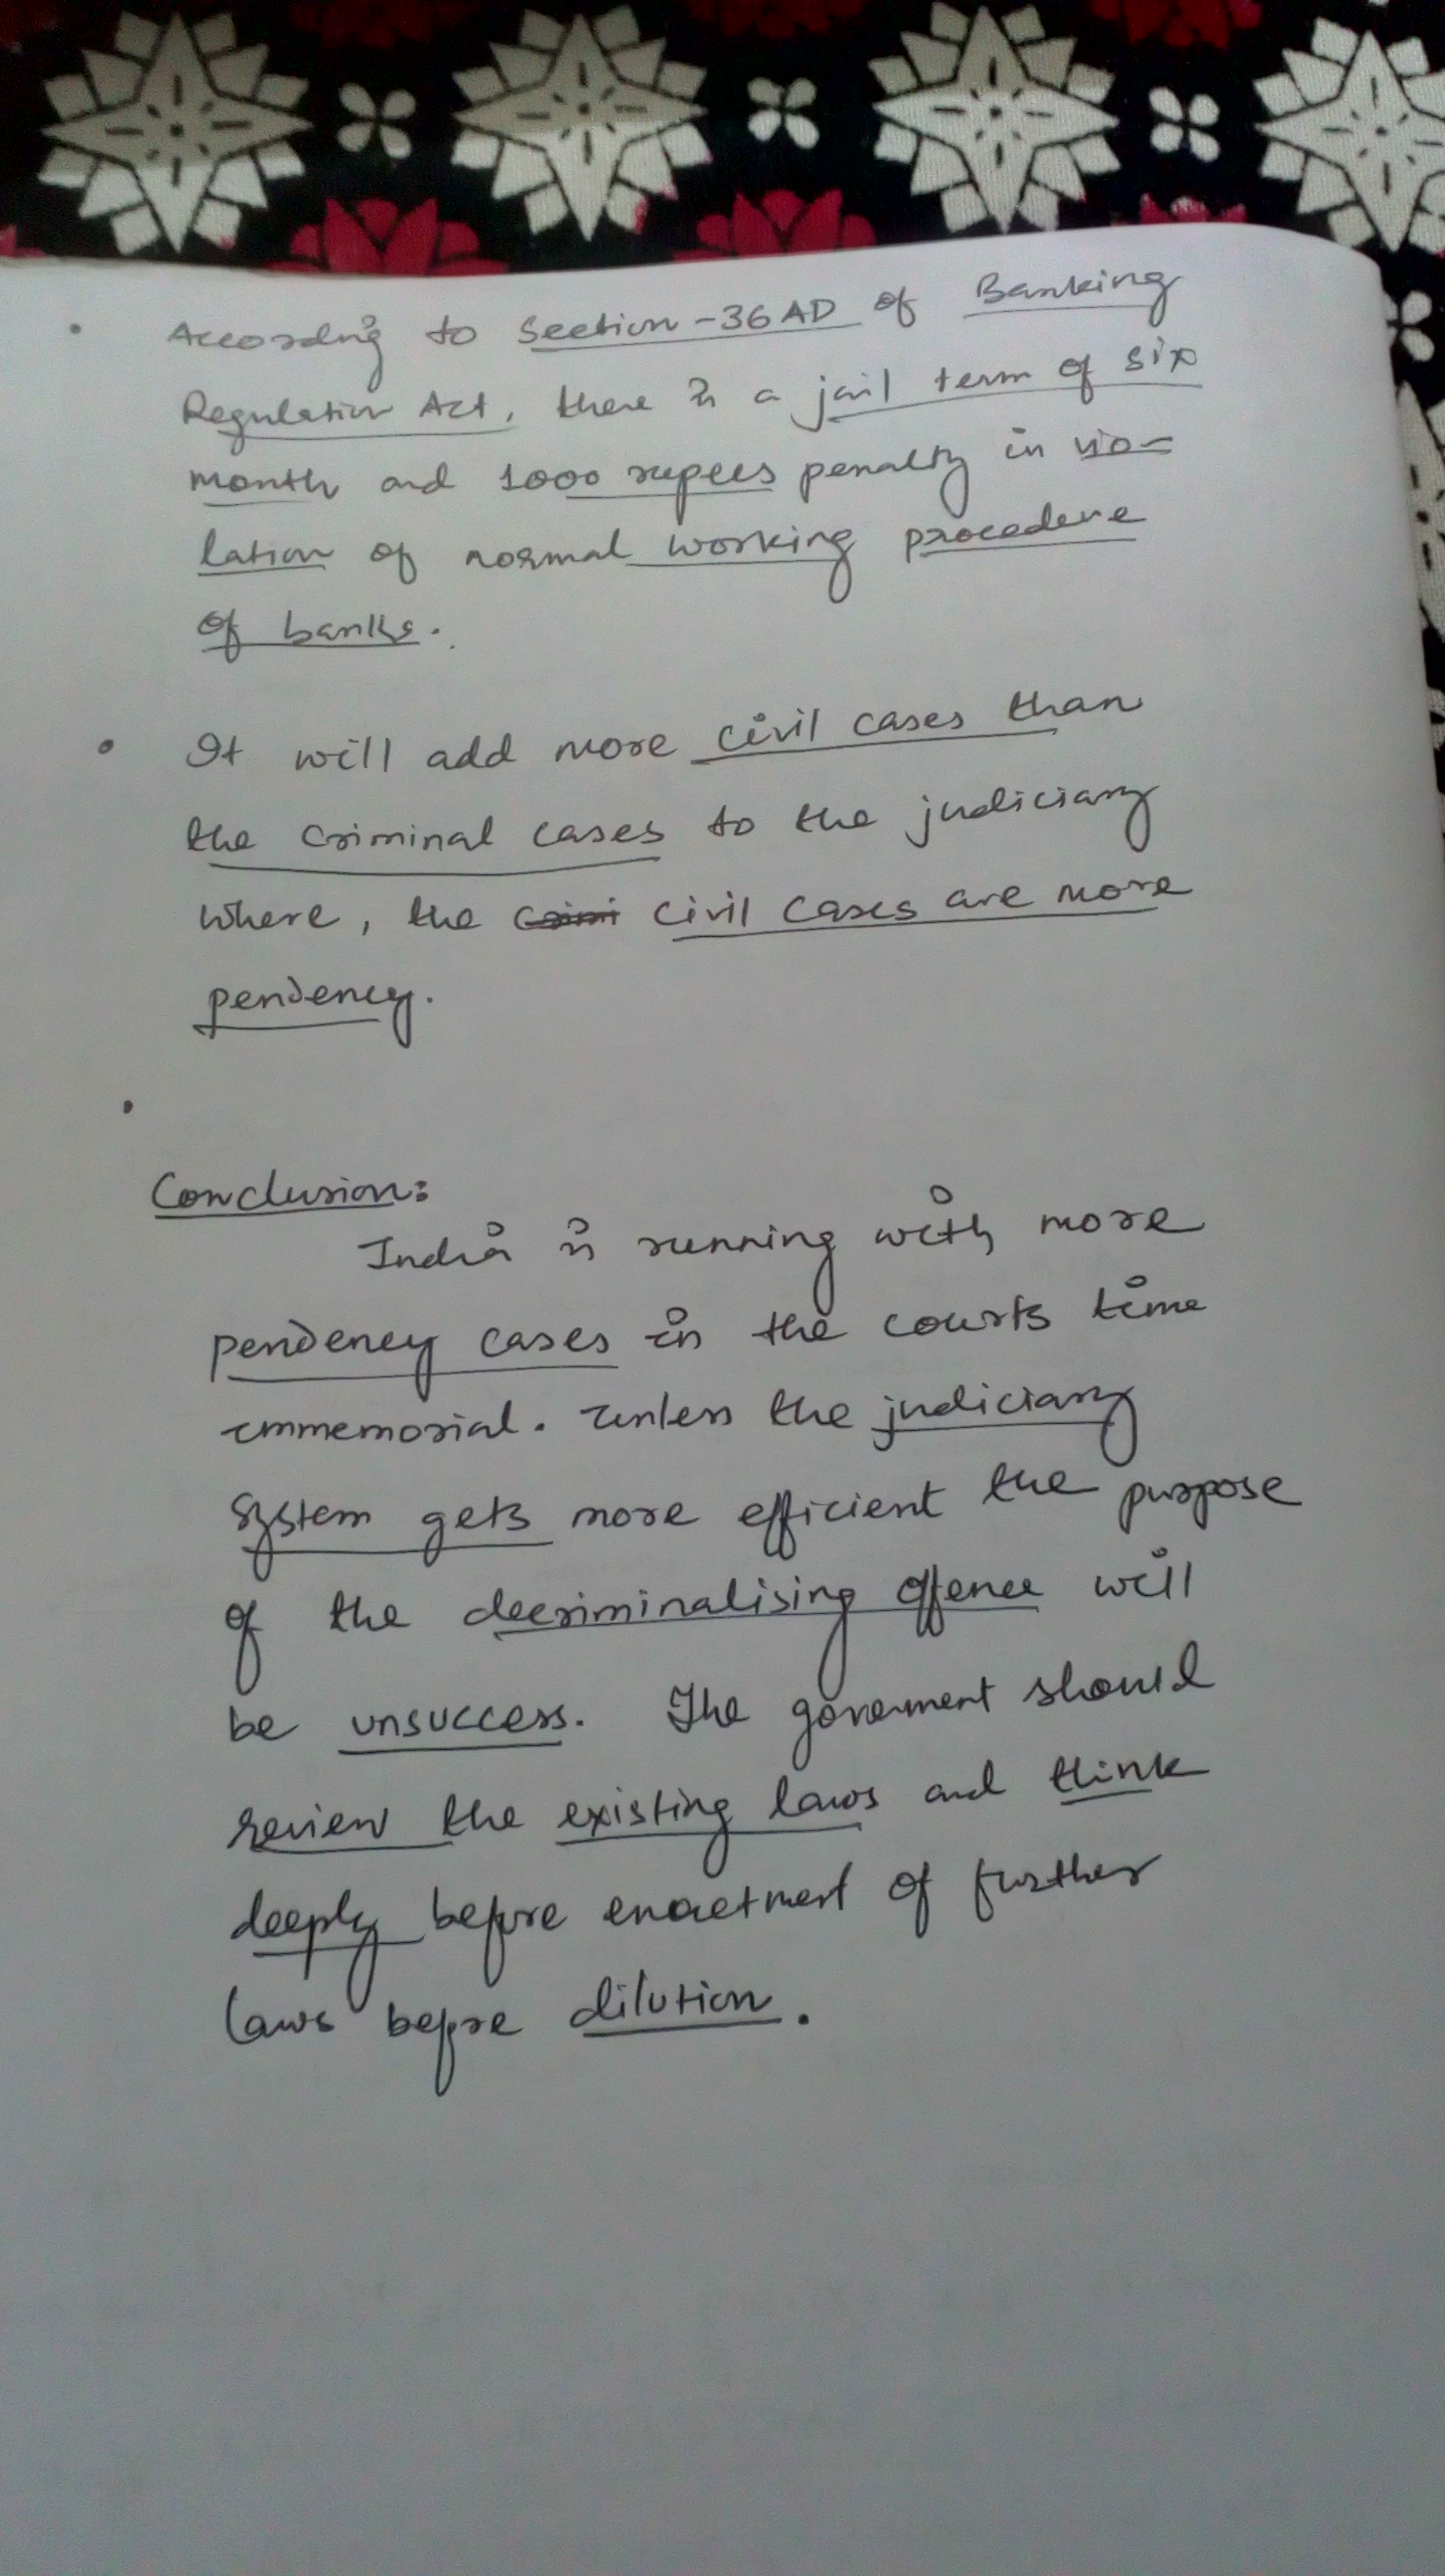 According to Section-36AD of Banking
Regulation Act, there is a jail term of six
month and 1000 rupees penalty in vio-
lation of normal working procedure
of banks.
It will add more civil cases than
the criminal cases to the judiciary
where, the civil cases are more
pendency.
Conclusion:
India is running with more
pendency cases in the courts time
immemorial. Unless the judiciary
system gets more efficient the purpose
of the decriminalising offence will
be unsuccess. The government should
review the existing laws and think
deeply before enactment of further
laws before dilution.